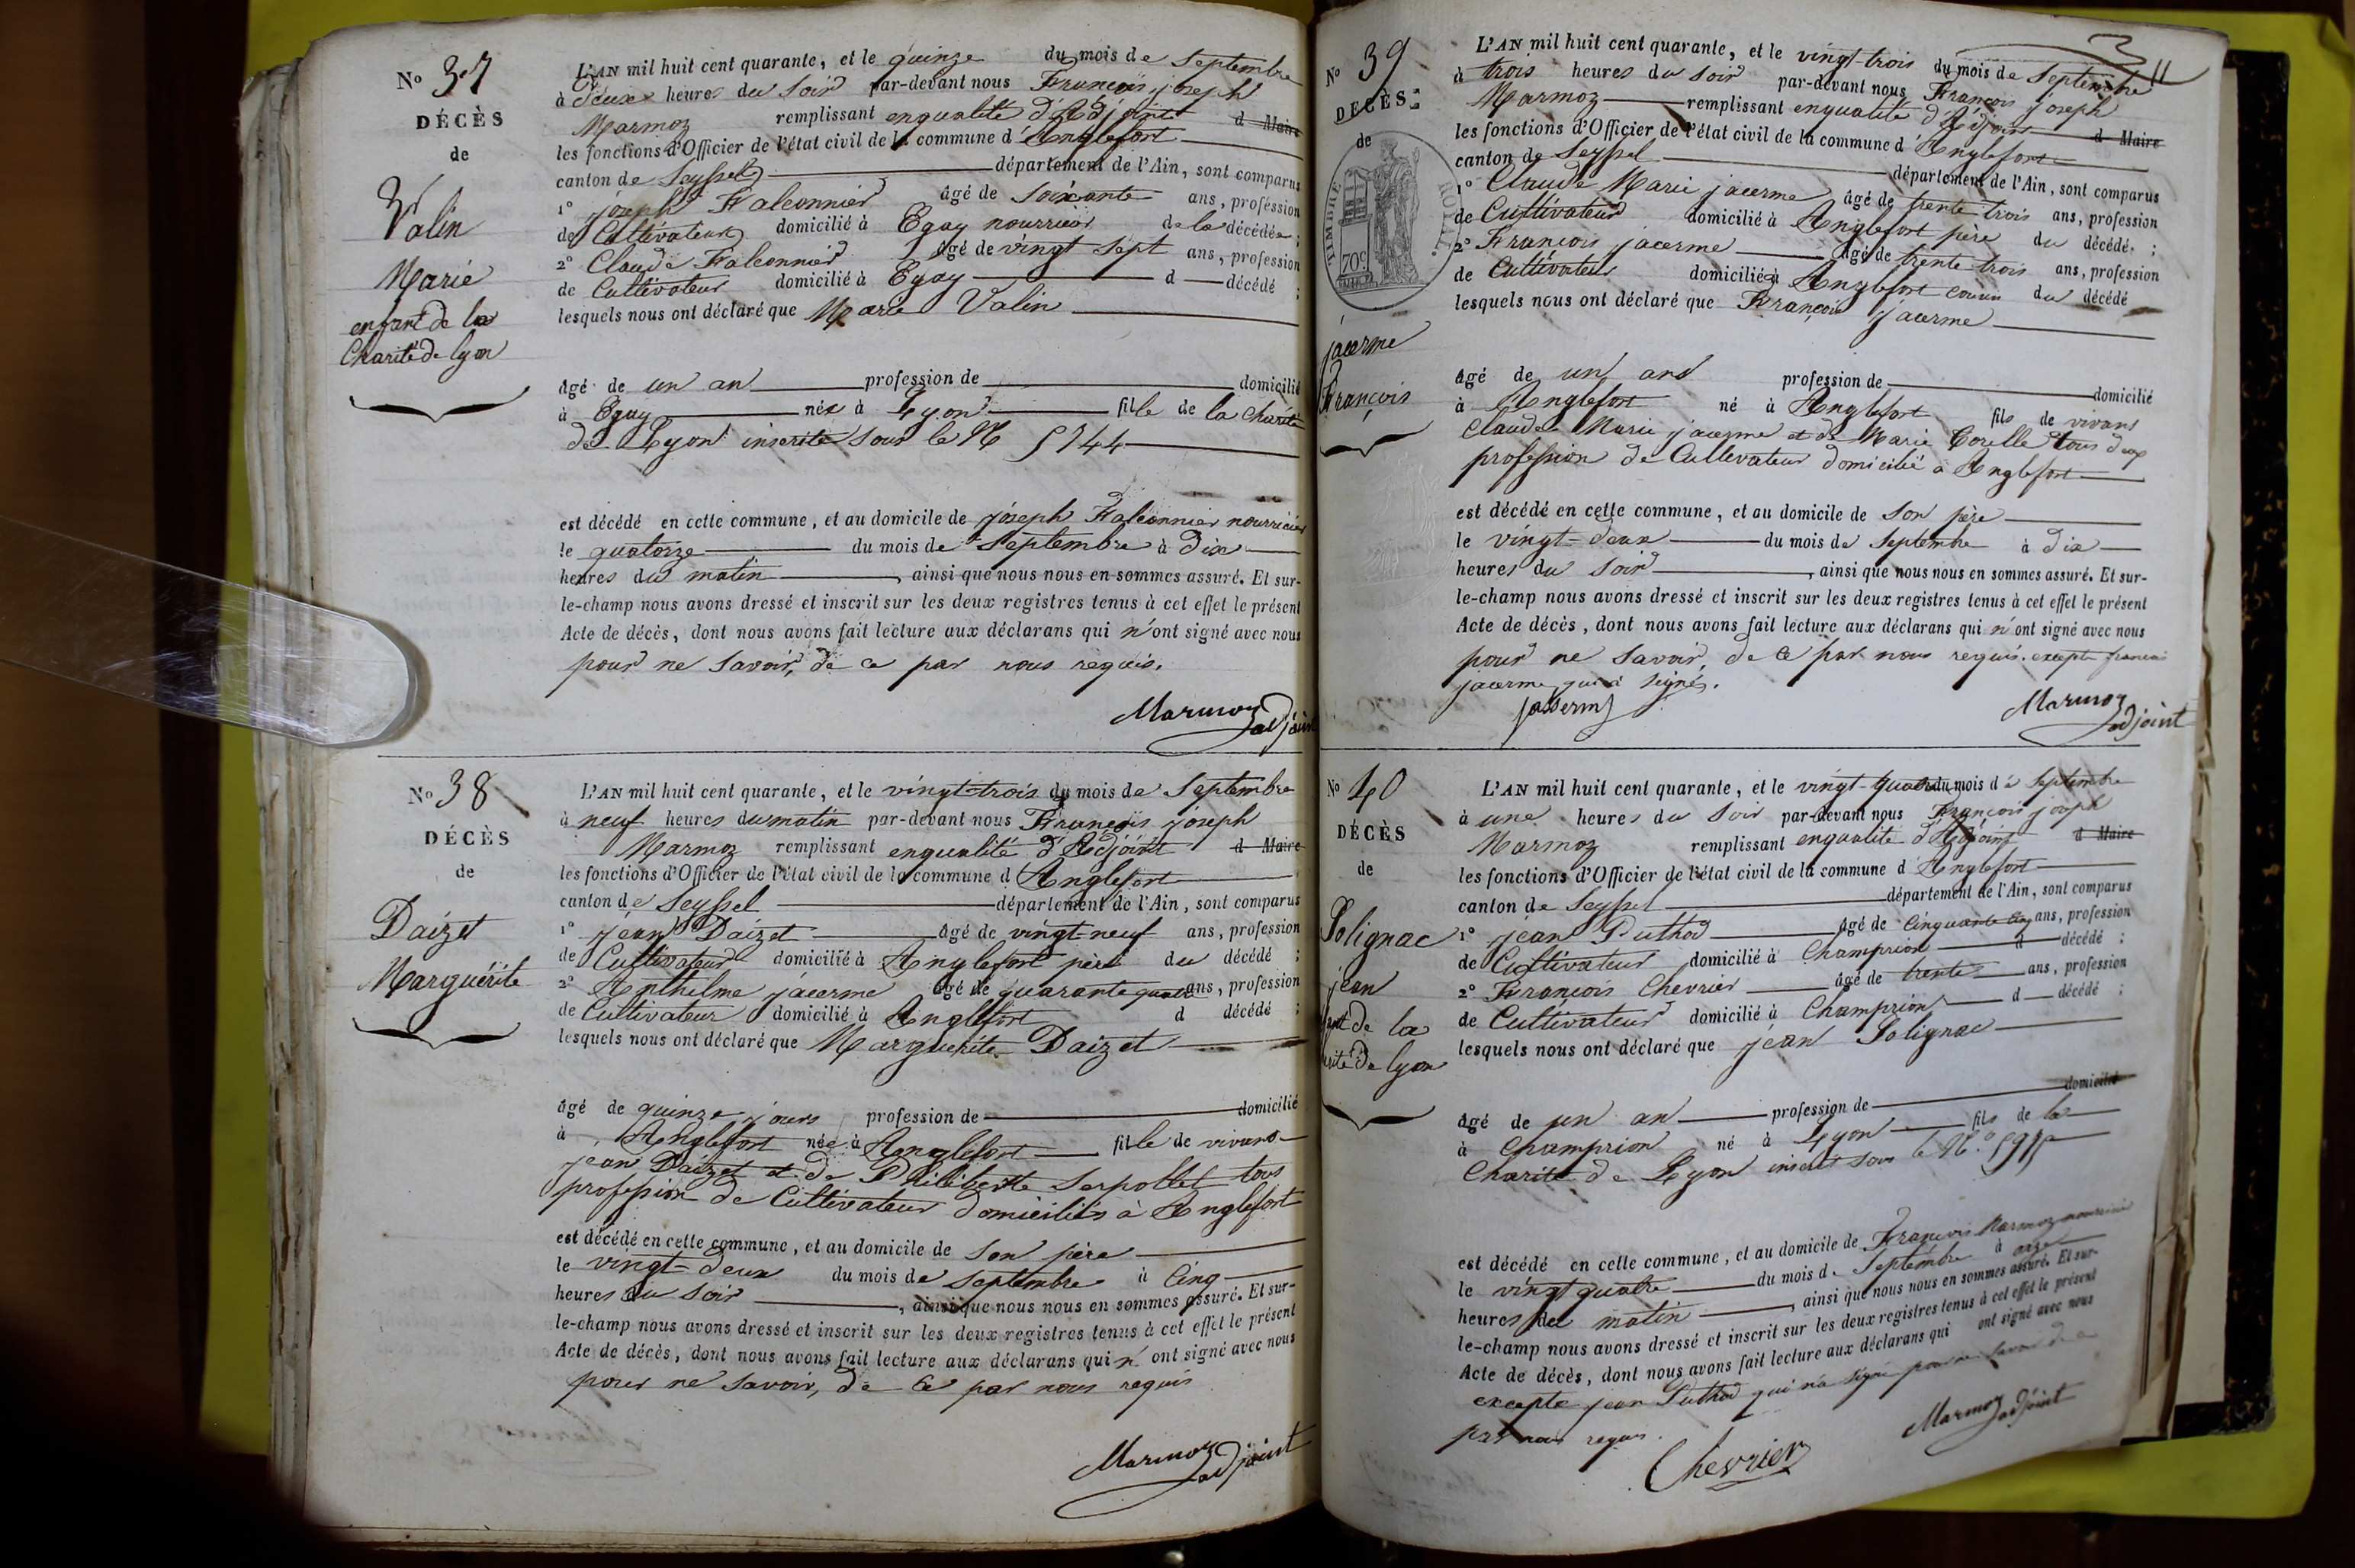 N° 37
DÉCÈS
de
Valin
Marie
enfant de la
Charité de Lyon
L'AN mil huit cent quarante, et le quinze du mois de Septembre
à deux heures du Soir par-devant nous François joseph
Marmoz remplissant enqualité d'Adjoint d Maire
les fonctions d'Officier de l'état civil de la commune d'Anglefort
canton de Seyssel département de l'Ain, sont comparus
1° joseph Falconnier âgé de Soixante ans, profession
de Cultivateur domicilié à Egay nourricier de la décédée ;
2° Claude Falconnier âgé de vingt Sept ans, profession
de Cultivateur domicilié à Egay d décédé ;
lesquels nous ont déclaré que Marie Valin
âgé de un an profession de domicilié
à Egay née à Lyon fille de la Charité
de Lyon inscrite Sous le N° 5744
est décédé en cette commune, et au domicile de joseph Falconnier nourricier
le quatorze du mois de Septembre à Dix
heures du matin, ainsi que nous nous en sommes assuré. Et sur-
le-champ nous avons dressé et inscrit sur les deux registres tenus à cet effet le présent
Acte de décès, dont nous avons fait lecture aux déclarans qui n'ont signé avec nous
pour ne Savoir, de ce par nous requis.
Marmoz adjoint
N° 38
DÉCÈS
de
Daizet
Marguerite
L'AN mil huit cent quarante, et le vingt-trois du mois de Septembre
à neuf heures du matin par-devant nous François joseph
Marmoz remplissant enqualité d'Adjoint d Maire
les fonctions d'Officier de l'état civil de la commune d Anglefort
canton de Seyssel département de l'Ain, sont comparus
1° jean Daizet âgé de vingt-neuf ans, profession
de Cultivateur domicilié à Anglefort père du décédé ;
2° Anthelme jacerme âgé de quarante quatre ans, profession
de Cultivateur domicilié à Anglefort d décédé ;
lesquels nous ont déclaré que Marguerite Daizet
âgé de quinze jours profession de domicilié
à Anglefort née à Anglefort fille de vivans
jean Daizet et de Philiberte Serpollet tous
profession de Cultivateur domiciliés à Anglefort
est décédé en cette commune, et au domicile de Son père
le vingt-deux du mois de Septembre à Cinq
heures du Soir, ainsi que nous nous en sommes assuré. Et sur-
le-champ nous avons dressé et inscrit sur les deux registres tenus à cet effet le présent
Acte de décès, dont nous avons fait lecture aux déclarans qui n' ont signé avec nous
pour ne Savoir, de Ce par nous requis
Marmoz adjoint
N° 39
DÉCÈS
de
TIMBRE ROYAL
70c
jacerme
François
L'AN mil huit cent quarante, et le vingt-trois du mois de Septembre
à trois heures du Soir par-devant nous François joseph
Marmoz remplissant enqualité d'Adjoint d Maire
les fonctions d'Officier de l'état civil de la commune d Anglefort
canton de Seyssel département de l'Ain, sont comparus
1° Claude Marie jacerme âgé de trente-trois ans, profession
de Cultivateur domicilié à Anglefort père du décédé ;
2° François jacerme âgé de trente trois ans, profession
de Cultivateur domicilié à Anglefort cousin du décédé
lesquels nous ont déclaré que François jacerme
âgé de un ans profession de domicilié
à Anglefort né à Anglefort fils de vivans
Claude Marie jacerme et de Marie Corelle tous deux
profession de Cultivateur domicilié à Anglefort
est décédé en cette commune, et au domicile de Son père
le vingt-deux du mois de Septembre à dix
heures du Soir, ainsi que nous nous en sommes assuré. Et sur-
le-champ nous avons dressé et inscrit sur les deux registres tenus à cet effet le présent
Acte de décès, dont nous avons fait lecture aux déclarans qui n'ont signé avec nous
pour ne Savoir, de Ce par nous requis. excepté francois
jacerme qui a Signés.
jasserm
Marmoz adjoint
N° 40
DÉCÈS
de
Solignac
jean
de la
de Lyon
L'AN mil huit cent quarante, et le vingt-quatre du mois de Septembre
à une heures du Soir par-devant nous François joseph
Marmoz remplissant enqualité d'Adjoint d Maire
les fonctions d'Officier de l'état civil de la commune d Anglefort
canton de Seyssel département de l'Ain, sont comparus
1° jean Puthod âgé de Cinquante cinq ans, profession
de Cultivateur domicilié à Champrion d décédé ;
2° François Chevrier âgé de trente ans, profession
de Cultivateur domicilié à Champrion d décédé ;
lesquels nous ont déclaré que jean Solignac
âgé de un an profession de domicilié
à Champrion né à Lyon fils de la
Charité de Lyon inscrit Sous le N°
est décédé en cette commune, et au domicile de François Marmoz nourricier
le vingt quatre du mois d. Septembre à onze
heures du matin, ainsi que nous nous en sommes assuré. Et sur-
le-champ nous avons dressé et inscrit sur les deux registres tenus à cet effet le présent
Acte de décès, dont nous avons fait lecture aux déclarans qui ont signé avec nous
excepté jean Puthod qui n'a Signé pour ne Savoir de ce
par nous requis.
Chevrier
Marmoz adjoint